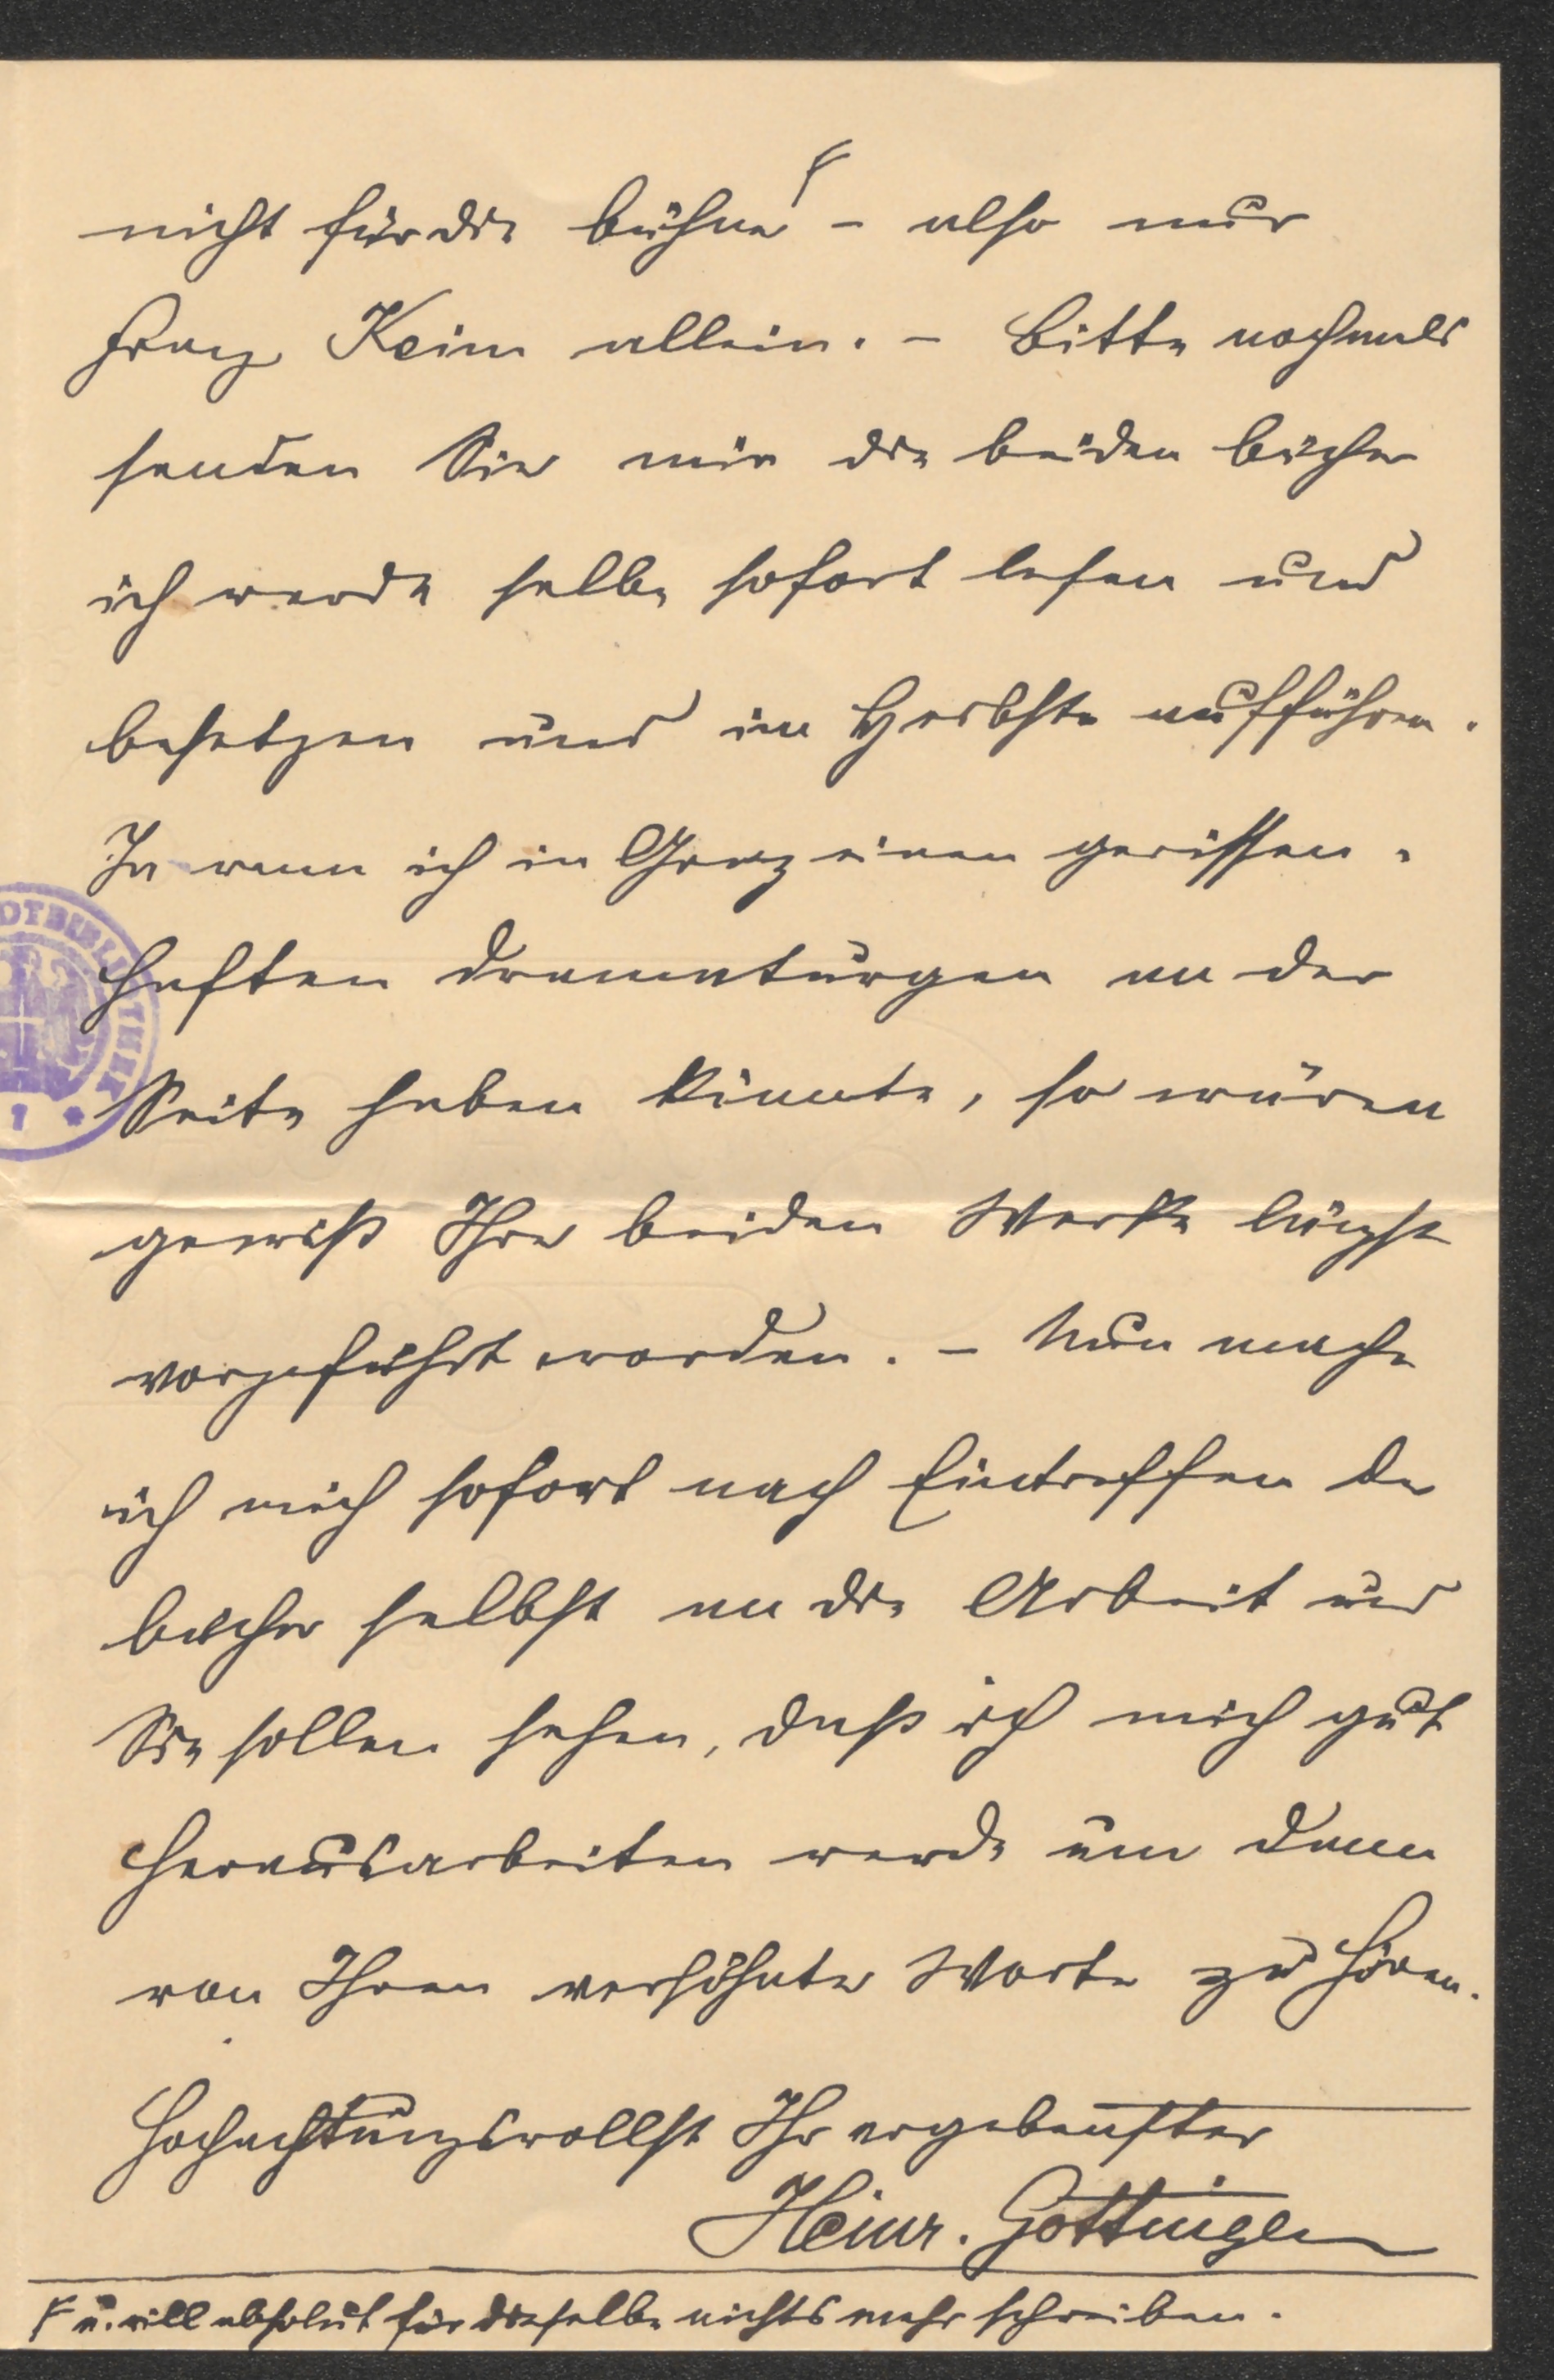 nicht für die Bühne ⌈ – also nur
Franz Keim allein. – Bitte nochmals
senden Sie mir die beiden Bücher
ich werde selbe sofort lesen und
besetzen und im Herbste aufführen.
Ja wenn ich in Graz einen gewissen-
haften Dramaturgen an der
Seite haben könnte, so wären
gewiß Ihre beiden Werke längst
vorgeführt worden. – Nun mache
ich mich sofort nach Eintreffen der
Bücher selbst an die Arbeit und
Sie sollen sehen, daß ich mich gut
herausarbeiten werde um dann
von Ihnen versöhnte Worte zu hören.
Hochachtungsvollst Ihr ergebenster
Heinr. Gottinger
⌈ u. will absolut für dieselbe nichts mehr schreiben.